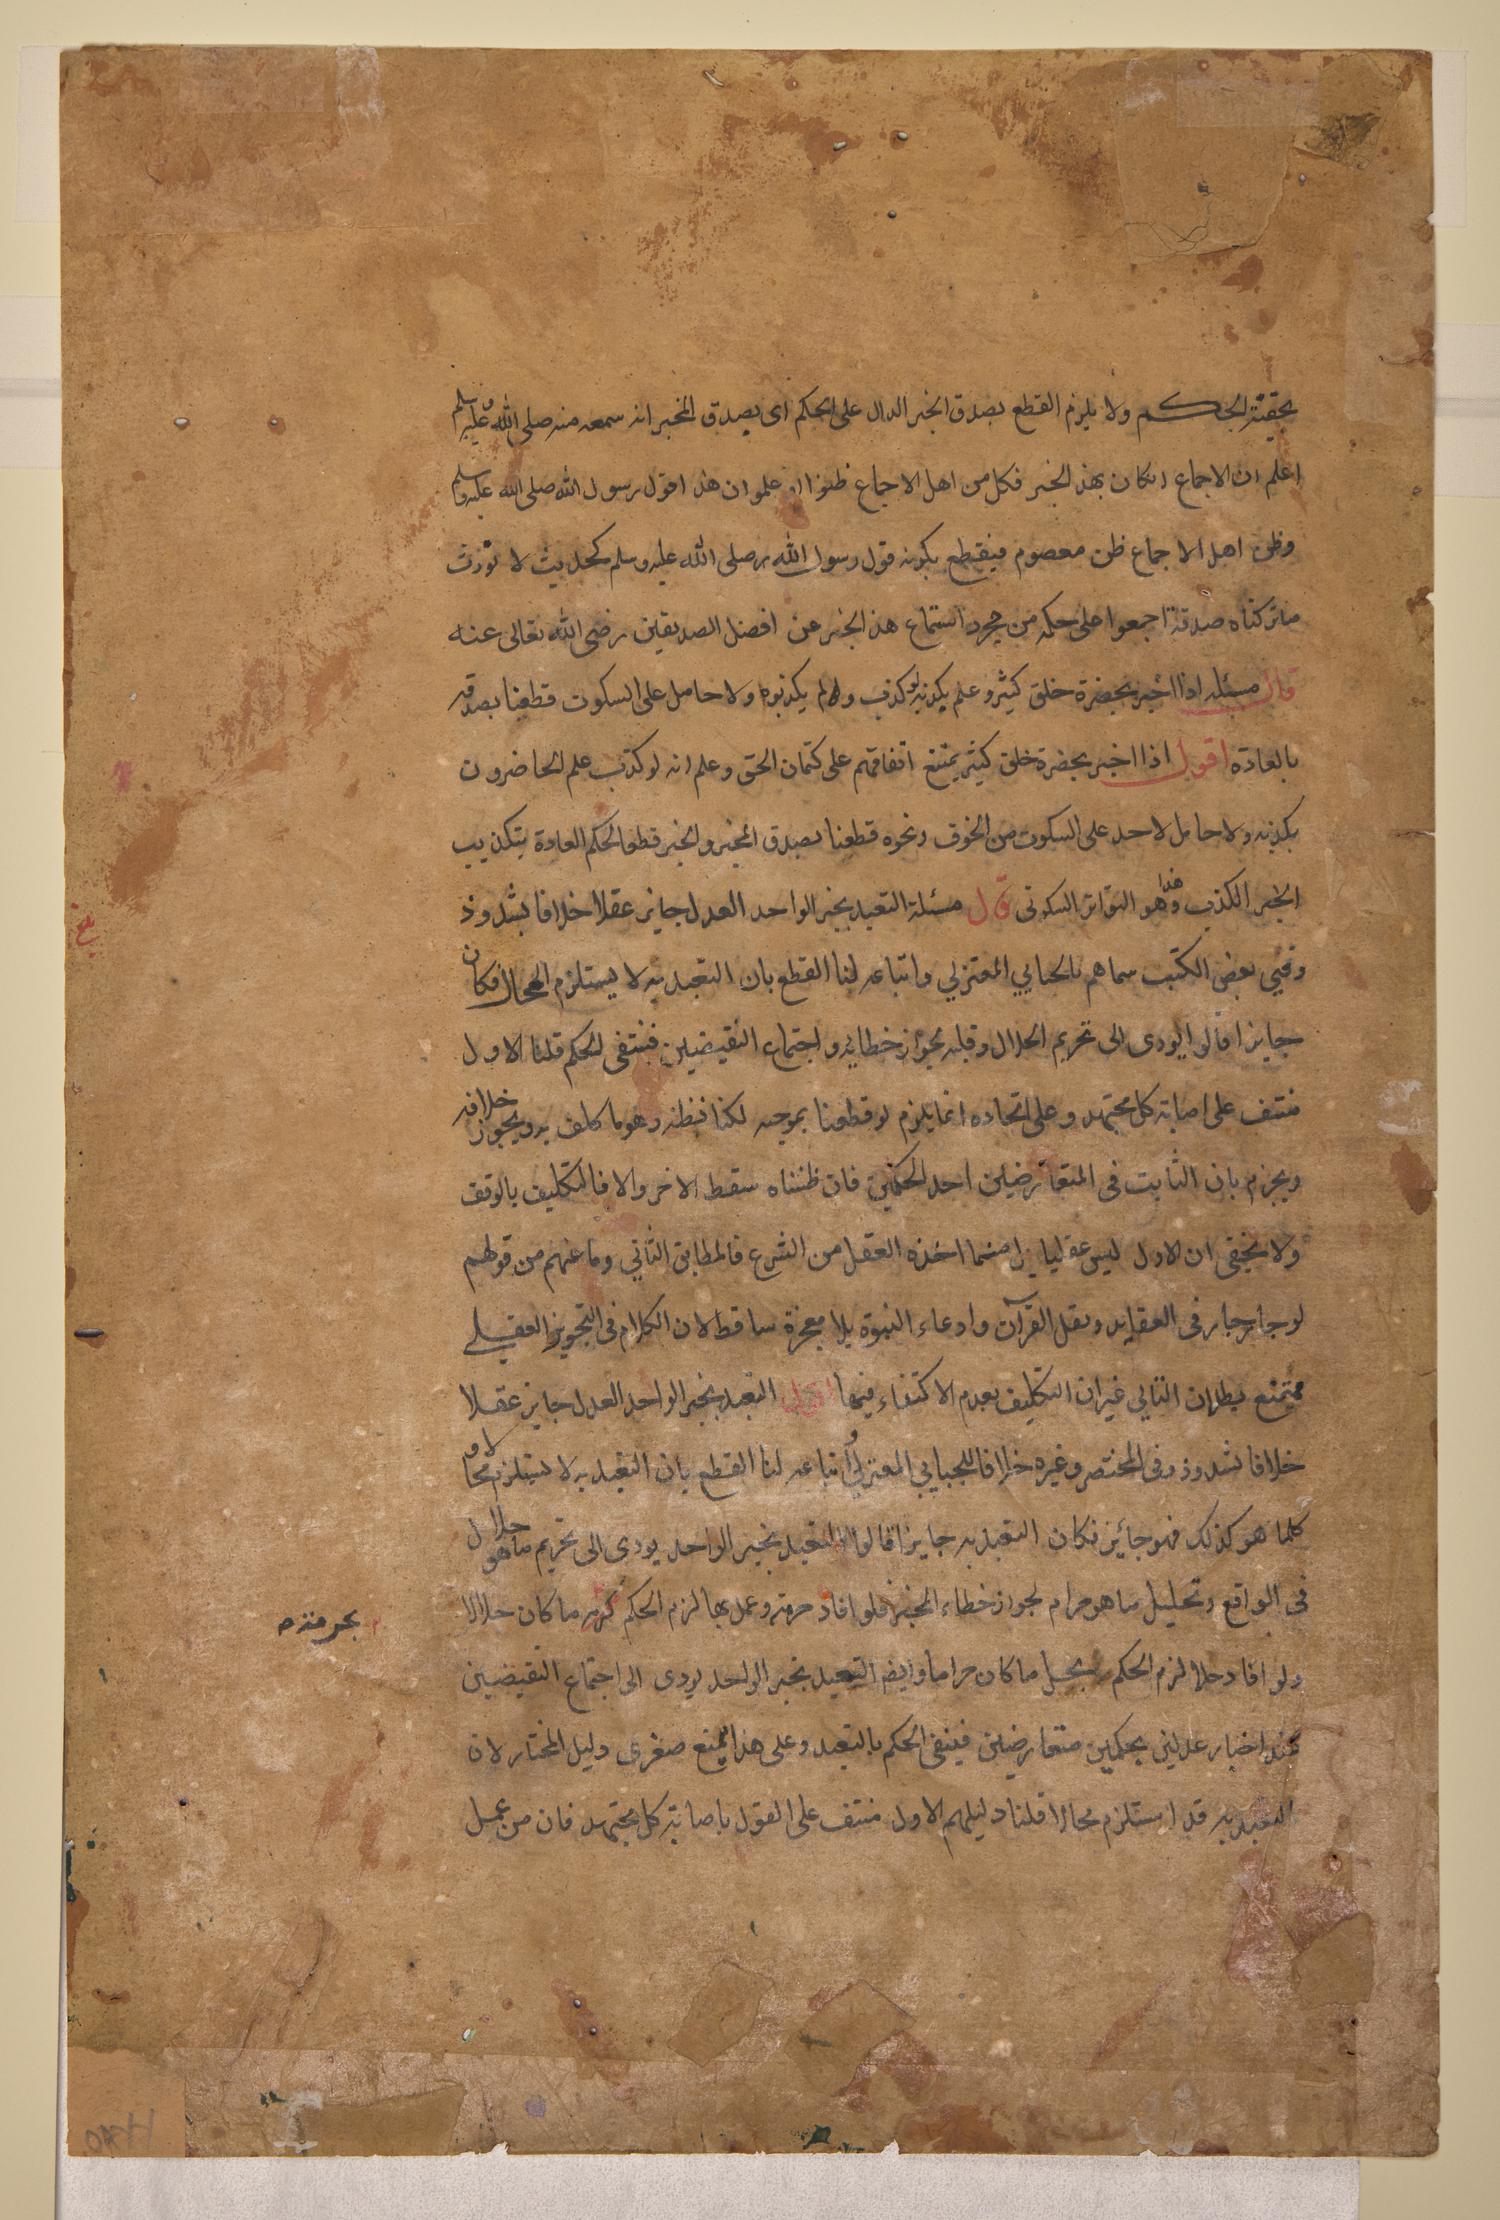 بحقيته الحكم ولا يلزم القطع بصدق الخبر الدال على الحكم اى بصدق المخبر انه سمعه منه صلى الله عليه وسلم
اعلم ان الاجماع انكان بهذا الخبر فكل من اهل الاجماع ظنوا او علموا ان هذا قول رسول الله صلى الله عليه وسلم
وظن اهل الاجماع ظن معصوم فيقطع بكونه قول رسول الله صلى الله عليه وسلم كحديث لا نورث
ما تركناه صدقة اجمعوا على حكمه من مجرد استماع هذا الخبر عن افضل الصديقين رضى الله تعالى عنه
قال مسئله اذا اخبر بحضرة خلق كثير وعلم بكذبه لو كذب ولم يكذبوه ولا حامل على السكوت قطعنا بصدقه
بالعادة اقول اذا اخبر بحضرة خلق كثير يمتنع اتفاقهم على كتمان الحق وعلم انه لو كذب علم الحاضرون
بكذبه ولا حامل لاحد على السكوت من الخوف ونحوه قطعنا بصدق المخبر والخبر قطعا لحكم العادة بتكذيب
الخبر الكذب وهذا هو التواتر السكوتى قال مسئلة التعبد بخبر الواحد العدل جايز عقلا خلافا لشذوذ
وفي بعض الكتب سماهم بالجبايي المعتزلي واتباعه لنا القطع بان التعبد به لا يستلزم المحال فكان
جايزا قالوا يودى الى تحريم الحلال وقلبه لجواز خطايه واجتماع النقيضين فينتفى الحكم قلنا الاول
منتف على اصابة كل مجتهد وعلى اتحاده انما يلزم لو قطعنا بموجبه لكنا نظنه وهو ما كلف به ويجوز خلافه
ويجزم بان الثابت فى المتعارضين احد الحكمين فان ظنناه سقط الاخر والا فالتكليف بالوقف
ولا يخفى ان الاول ليس عقليا بل مما اخذه العقل من الشرع فالمطابق الثاني وما عنهم من قولهم
لو جاز جاز فى العقايد ونقل القرآن وادعاء النبوة بلا معجزة ساقط لان الكلام فى التجويز العقلي
فيمتنع بطلان التالي غير ان التكليف بعدم الاكتفاء فيها اقول التعبد بخبر الواحد العدل جايز عقلا
خلافا لشذوذ وفى المختصر وغيره خلافا للجبايي المعتزلي واتباعه لنا القطع بان التعبد به لا يستلزم محالا و
كلما هو كذلك فهو جائز فكان التعبد به جايزا قالوا التعبد بخبر الواحد يودى الى تحريم ما هو حلال
فى الواقع وتحليل ما هو حرام لجواز خطاء المخبر فلو افاد حرمة وعمل بها لزم الحكم بحرمة ما كان حلالا
ولو افاد حلا لزم الحكم بحل ما كان حراما وايضا التعبد بخبر الواحد يودى الى اجتماع النقيضين
عند اخبار عدلين بحكمين متعارضين فينتفى الحكم بالتعبد وعلى هذا يمنع صغرى دليل المختار لان
التعبد به قد استلزم محالا قلنا دليلهم الاول منتف على القول باصابة كل مجتهد فان من عمل